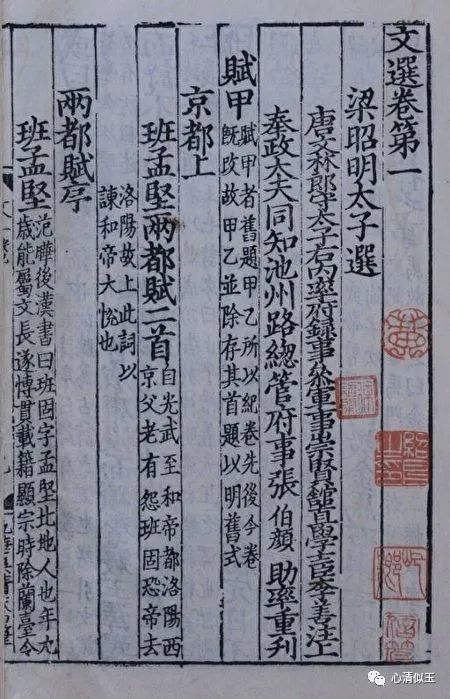 文選卷第一
梁昭明太子選
唐文林郎守太子右内率府録事叅軍事崇賢館直學士臣李善注上
奉政大夫同知池州路總管府事張伯顔 助率重刊
賦甲
賦甲者舊題甲乙所以紀卷先後今卷
既改故甲乙並除存其首題以明舊式
京都上
班孟堅兩都賦二首
自光武至和帝都洛陽西
京父老有怨班固恐帝去
洛陽故上此詞以
諫和帝大悅也
兩都賦序
班孟堅
范曄後漢書曰班固字孟堅北地人也年九
歲能屬文長遂博貫載籍顯宗時除蘭臺令
心清似玉